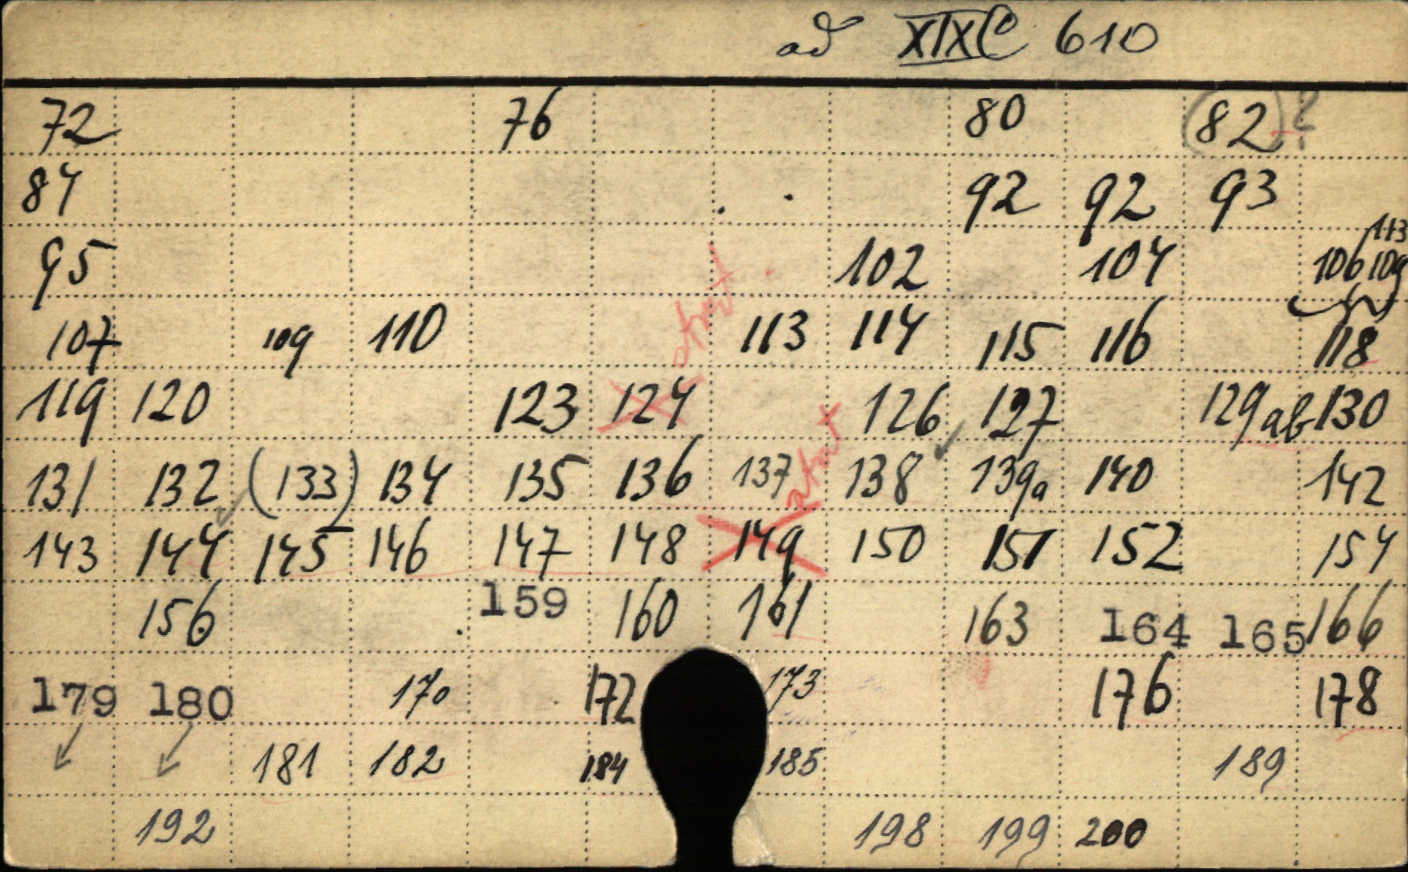 ad XIXC 610
72 76 80 (82)?
84 92 92 93
113
95 102 104 106 109
107 109 110 113 114 115 116 118
119 120 123 124 126 127 129ab 130
131 132 (133) 134 135 136 137 138 139a 140 142
143 144 145 146 147 148 149 150 151 152 154
156 159 160 161 163 164 165 166
179 180 170 172 173 176 178
181 182 184 185 189
192 198 199 200